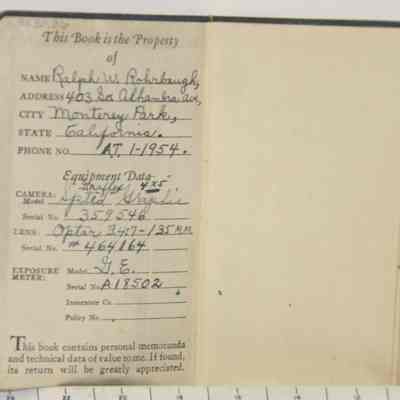 This Book is the Property
of
NAME Ralph W. Rohrbaugh,
ADDRESS 403 So. Alhambra Ave,
CITY Monterey Park,
STATE California.
PHONE NO. AT. 1-1954.
Equipment Data
Graflex 4x5
CAMERA:
Model Speed Graphic
Serial No. 359546
LENS: Optar f4.7-135 MM.
Serial No. # 464164
EXPOSURE METER: Model G.E.
Serial No. A18502
Insurance Co.
Policy No.
This book contains personal memoranda
and technical data of value to me. If found,
its return will be greatly appreciated.